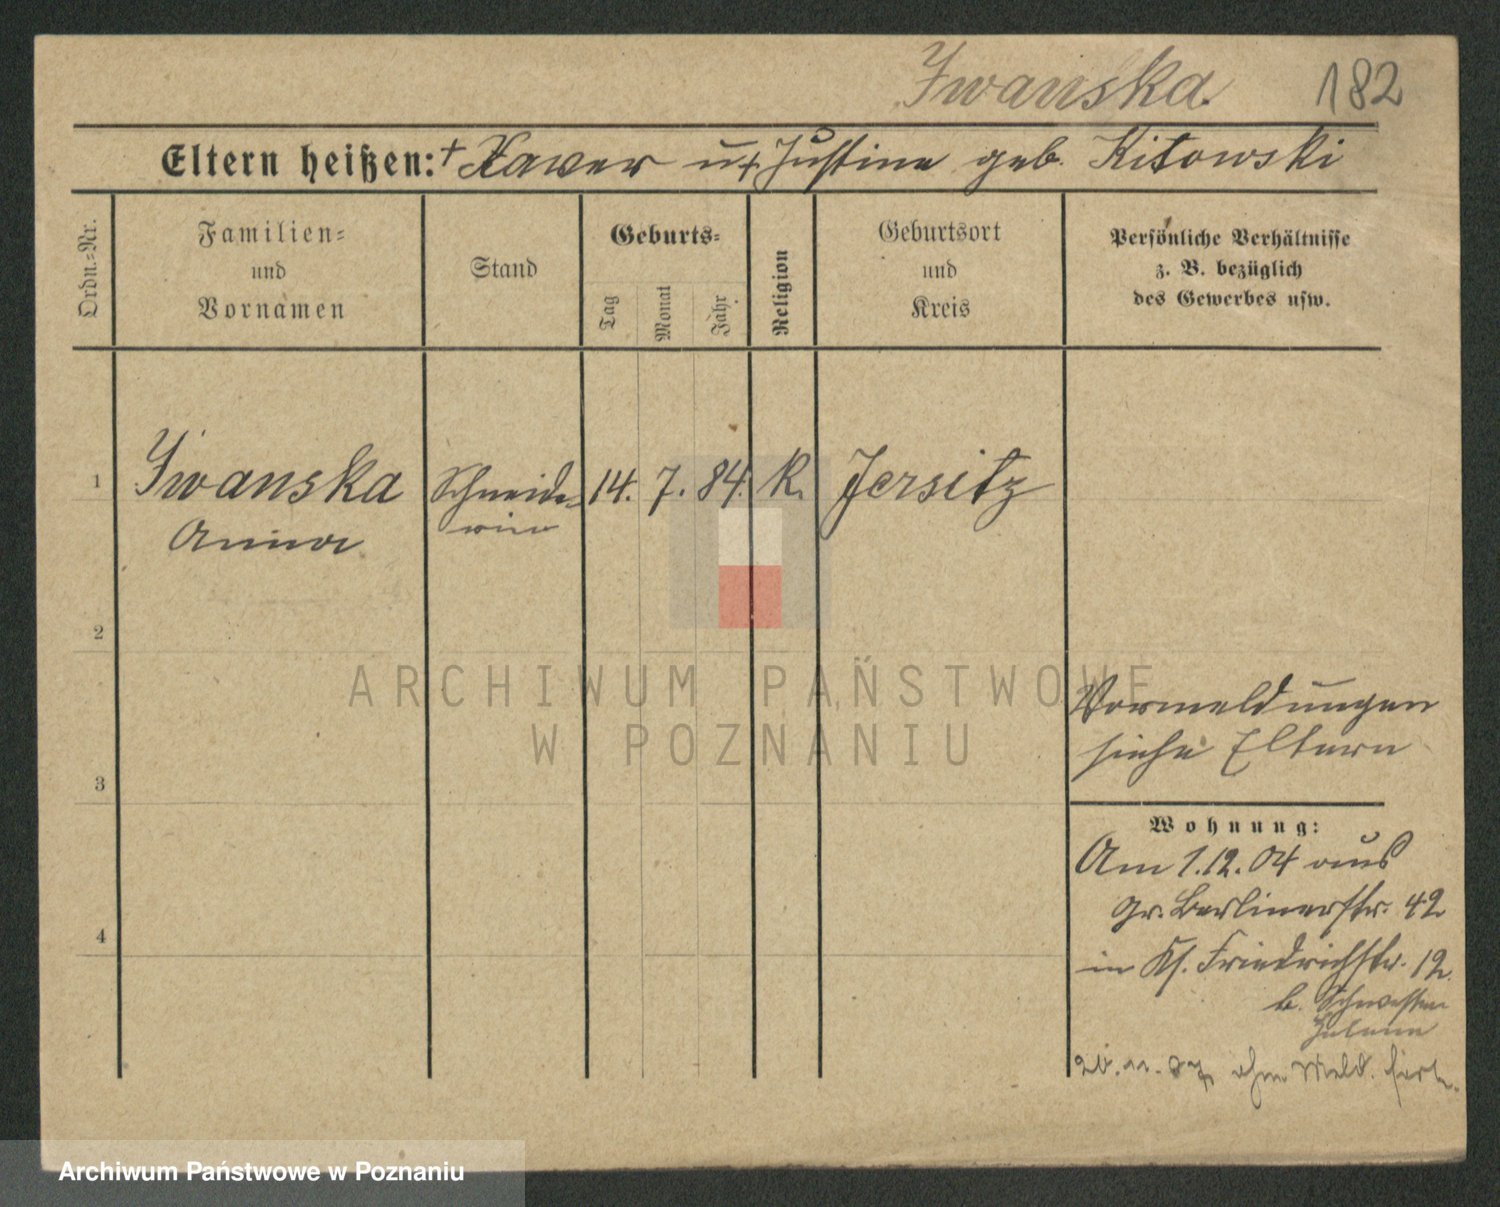 Iwanska.
182
Eltern heißen: + Xaver u + Justine geb. Kitowski
Ordn.-Nr.
Familien-
und
Vornamen
Stand
Geburts-
Tag
Monat
Jahr
Religion
Geburtsort
und
Kreis
Persönliche Verhältnisse
z. B. bezüglich
des Gewerbes usw.
1 Iwanska Schneide- 14. 7. 84. K. Jersitz
Anna rin
2
ARCHIWUM PAŃSTWOWE
W POZNANIU
Vormeldungen
siehe Eltern
3
Wohnung:
Am 1.12.04 aus
gr. Berlinerstr. 42
4
in Kl. Friedrichstr. 12.
b. Schwester
ohne Meld.
Archiwum Państwowe w Poznaniu